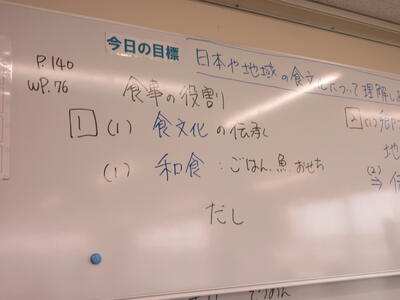 P.140
WP.76
今日の目標
日本や地域の食文化について理解し
食事の役割
1 (1) 食文化の伝承
(1) 和食：ごはん.魚.おせち
だし
2 (1) 郷
地
(2)
⇒